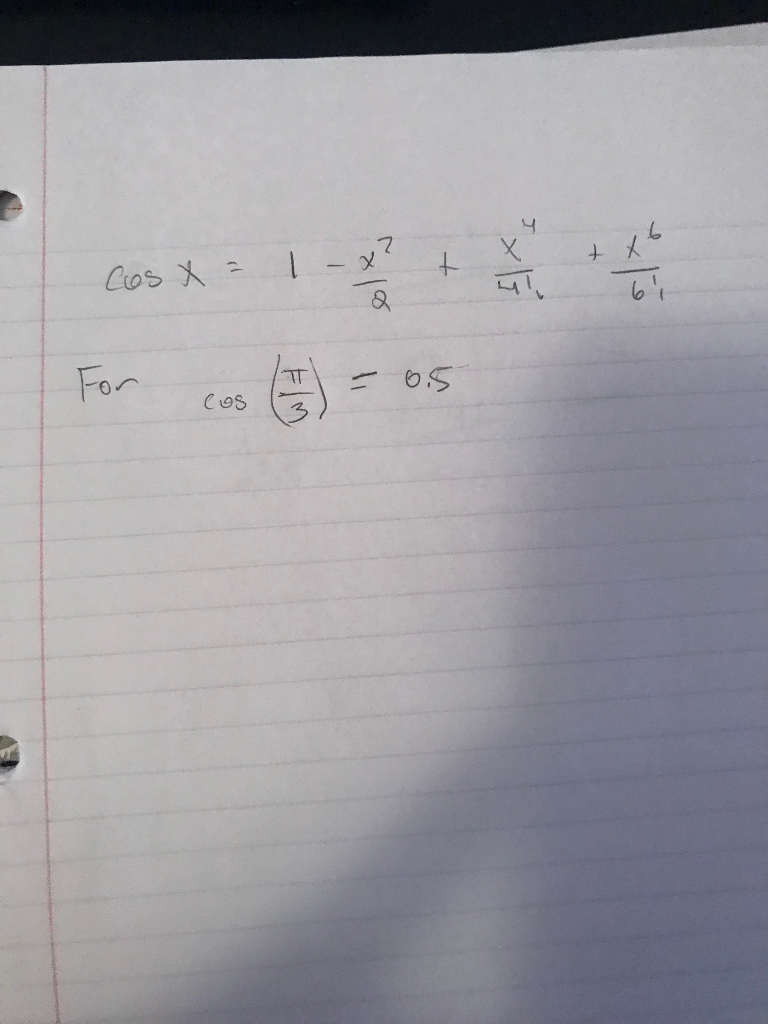 cos x = 1 - x²/2 + x⁴/4! + x⁶/6!
For cos (π/3) = 0.5